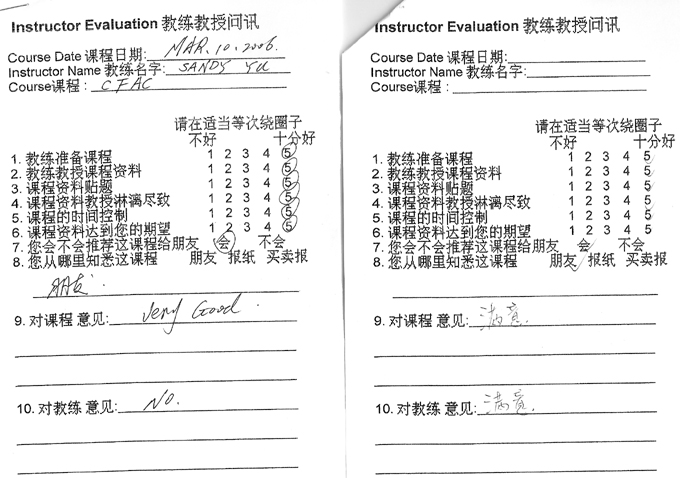 Instructor Evaluation 教练教授问讯
Course Date 课程日期: MAR. 10. 2006.
Instructor Name 教练名字: SANDY YU
Course课程 : CFAC
请在适当等次绕圈子
不好 十分好
1. 教练准备课程 1 2 3 4 5
2. 教练教授课程资料 1 2 3 4 5
3. 课程资料贴题 1 2 3 4 5
4. 课程资料教授淋漓尽致 1 2 3 4 5
5. 课程的时间控制 1 2 3 4 5
6. 课程资料达到您的期望 1 2 3 4 5
7. 您会不会推荐这课程给朋友 会 不会
8. 您从哪里知悉这课程 朋友 报纸 买卖报
朋友
9. 对课程 意见: Very Good.
10. 对教练 意见: No.
Instructor Evaluation 教练教授问讯
Course Date 课程日期:
Instructor Name 教练名字:
Course课程 :
请在适当等次绕圈子
不好 十分好
1. 教练准备课程 1 2 3 4 5
2. 教练教授课程资料 1 2 3 4 5
3. 课程资料贴题 1 2 3 4 5
4. 课程资料教授淋漓尽致 1 2 3 4 5
5. 课程的时间控制 1 2 3 4 5
6. 课程资料达到您的期望 1 2 3 4 5
7. 您会不会推荐这课程给朋友 会 不会
8. 您从哪里知悉这课程 朋友 报纸 买卖报
9. 对课程 意见: 满意.
10. 对教练 意见: 满意.